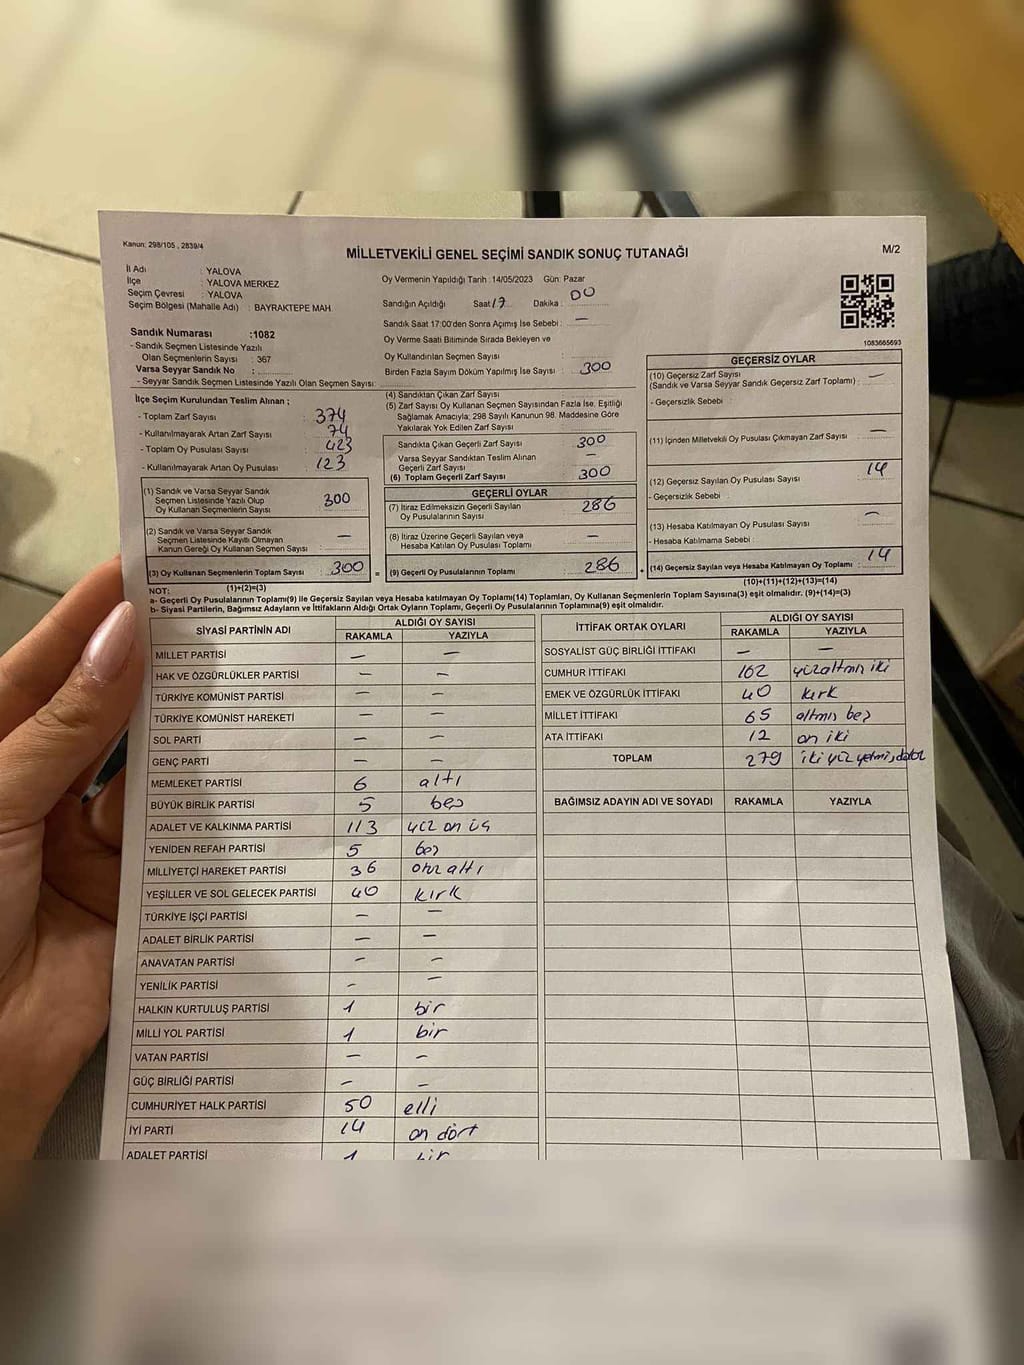 Kanun: 298/105 , 2839/4
MİLLETVEKİLİ GENEL SEÇİMİ SANDIK SONUÇ TUTANAĞI
M/2
İl Adı : YALOVA
İlçe : YALOVA MERKEZ
Seçim Çevresi : YALOVA
Seçim Bölgesi (Mahalle Adı) : BAYRAKTEPE MAH.
Sandık Numarası :1082
- Sandık Seçmen Listesinde Yazılı
Olan Seçmenlerin Sayısı : 367
Varsa Seyyar Sandık No :
- Seyyar Sandık Seçmen Listesinde Yazılı Olan Seçmen Sayısı:
Oy Vermenin Yapıldığı Tarih :14/05/2023 Gün: Pazar
Sandığın Açıldığı Saat 17 Dakika : 00
Sandık Saat 17:00'den Sonra Açımış İse Sebebi : —
Oy Verme Saati Bitiminde Sırada Bekleyen ve
Oy Kullandırılan Seçmen Sayısı :
Birden Fazla Sayım Döküm Yapılmış İse Sayısı : 300
1083665693
İlçe Seçim Kurulundan Teslim Alınan ;
- Toplam Zarf Sayısı : 374
- Kullanılmayarak Artan Zarf Sayısı : 74
- Toplam Oy Pusulası Sayısı : 423
- Kullanılmayarak Artan Oy Pusulası : 123
(1) Sandık ve Varsa Seyyar Sandık
Seçmen Listesinde Yazılı Olup
Oy Kullanan Seçmenlerin Sayısı : 300
(2) Sandık ve Varsa Seyyar Sandık
Seçmen Listesinde Kayıtlı Olmayan
Kanun Gereği Oy Kullanan Seçmen Sayısı : —
(3) Oy Kullanan Seçmenlerin Toplam Sayısı : 300 =
(1)+(2)=(3)
(4) Sandıktan Çıkan Zarf Sayısı :
(5) Zarf Sayısı Oy Kullanan Seçmen Sayısından Fazla İse, Eşitliği
Sağlamak Amacıyla; 298 Sayılı Kanunun 98. Maddesine Göre
Yakılarak Yok Edilen Zarf Sayısı :
Sandıkta Çıkan Geçerli Zarf Sayısı : 300
Varsa Seyyar Sandıktan Teslim Alınan
Geçerli Zarf Sayısı : —
(6) Toplam Geçerli Zarf Sayısı : 300
GEÇERLİ OYLAR
(7) İtiraz Edilmeksizin Geçerli Sayılan
Oy Pusulalarının Sayısı : 286
(8) İtiraz Üzerine Geçerli Sayılan veya
Hesaba Katılan Oy Pusulası Toplamı : —
(9) Geçerli Oy Pusulalarının Toplamı : 286 +
GEÇERSİZ OYLAR
(10) Geçersiz Zarf Sayısı
(Sandık ve Varsa Seyyar Sandık Geçersiz Zarf Toplamı) : —
- Geçersizlik Sebebi :
(11) İçinden Milletvekili Oy Pusulası Çıkmayan Zarf Sayısı : —
(12) Geçersiz Sayılan Oy Pusulası Sayısı : 14
- Geçersizlik Sebebi :
(13) Hesaba Katılmayan Oy Pusulası Sayısı : —
- Hesaba Katılmama Sebebi :
(14) Geçersiz Sayılan veya Hesaba Katılmayan Oy Toplamı : 14
(10)+(11)+(12)+(13)=(14)
NOT:
a- Geçerli Oy Pusulalarının Toplamı(9) ile Geçersiz Sayılan veya Hesaba katılmayan Oy Toplamı(14) Toplamları, Oy Kullanan Seçmenlerin Toplam Sayısına(3) eşit olmalıdır. (9)+(14)=(3)
b- Siyasi Partilerin, Bağımsız Adayların ve İttifakların Aldığı Ortak Oyların Toplamı, Geçerli Oy Pusulalarının Toplamına(9) eşit olmalıdır.
SİYASİ PARTİNİN ADI ALDIĞI OY SAYISI
RAKAMLA YAZIYLA
MİLLET PARTİSİ — —
HAK VE ÖZGÜRLÜKLER PARTİSİ — —
TÜRKİYE KOMÜNİST PARTİSİ — —
TÜRKİYE KOMÜNİST HAREKETİ — —
SOL PARTİ — —
GENÇ PARTİ — —
MEMLEKET PARTİSİ 6 altı
BÜYÜK BİRLİK PARTİSİ 5 beş
ADALET VE KALKINMA PARTİSİ 113 yüz on üç
YENİDEN REFAH PARTİSİ 5 beş
MİLLİYETÇİ HAREKET PARTİSİ 36 otuz altı
YEŞİLLER VE SOL GELECEK PARTİSİ 40 kırk
TÜRKİYE İŞÇİ PARTİSİ — —
ADALET BİRLİK PARTİSİ — —
ANAVATAN PARTİSİ — —
YENİLİK PARTİSİ — —
HALKIN KURTULUŞ PARTİSİ 1 bir
MİLLİ YOL PARTİSİ 1 bir
VATAN PARTİSİ — —
GÜÇ BİRLİĞİ PARTİSİ — —
CUMHURİYET HALK PARTİSİ 50 elli
İYİ PARTİ 14 on dört
ADALET PARTİSİ 1 bir
İTTİFAK ORTAK OYLARI ALDIĞI OY SAYISI
RAKAMLA YAZIYLA
SOSYALİST GÜÇ BİRLİĞİ İTTİFAKI — —
CUMHUR İTTİFAKI 162 yüzaltmış iki
EMEK VE ÖZGÜRLÜK İTTİFAKI 40 kırk
MİLLET İTTİFAKI 65 altmış beş
ATA İTTİFAKI 12 on iki
TOPLAM 279 iki yüz yetmiş dokuz
BAĞIMSIZ ADAYIN ADI VE SOYADI RAKAMLA YAZIYLA